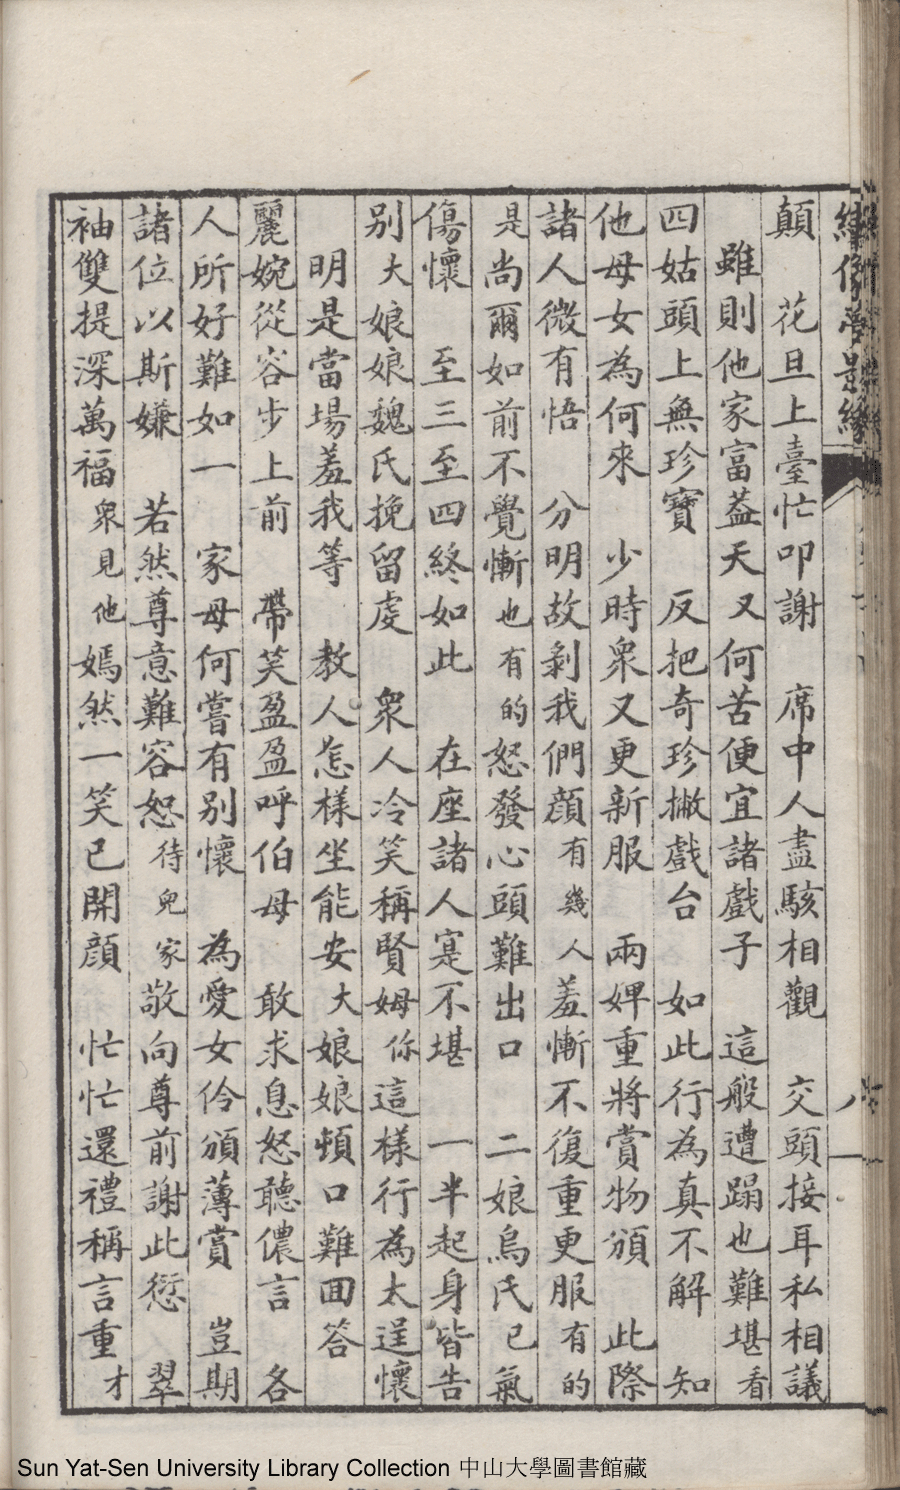 顛　花旦上臺忙叩謝　席中人盡駭相觀　交頭接耳私相議
雖則他家富葢天又何苦便宜諸戲子　這般遭蹋也難堪看
四姑頭上無珍寶　反把奇珍撇戲台　如此行為真不解　知
他母女為何來　少時衆又更新服　兩婢重將賞物頒　此際
諸人微有悟　分明故剝我們顏有幾人羞慚不復重更服有的
是尚爾如前不覺慚也有的怒發心頭難出口　二娘烏氏已氣
傷懷　至三至四終如此　在座諸人寔不堪　一半起身皆告
别大娘娘魏氏挽留虔　衆人冷笑稱賢姆你這樣行為太逞懷
明是當場羞我等　教人怎樣坐能安大娘娘頓口難回答
麗婉從容步上前　帶笑盈盈呼伯母　敢求息怒聽儂言　各
人所好難如一　家母何嘗有别懷　為愛女伶頒薄賞　豈期
諸位以斯嫌　若然尊意難容恕待兒家敬向尊前謝此愆　翠
袖雙提深萬福衆見他嫣然一笑已開顏　忙忙還禮稱言重才
Sun Yat-Sen University Library Collection 中山大學圖書館藏